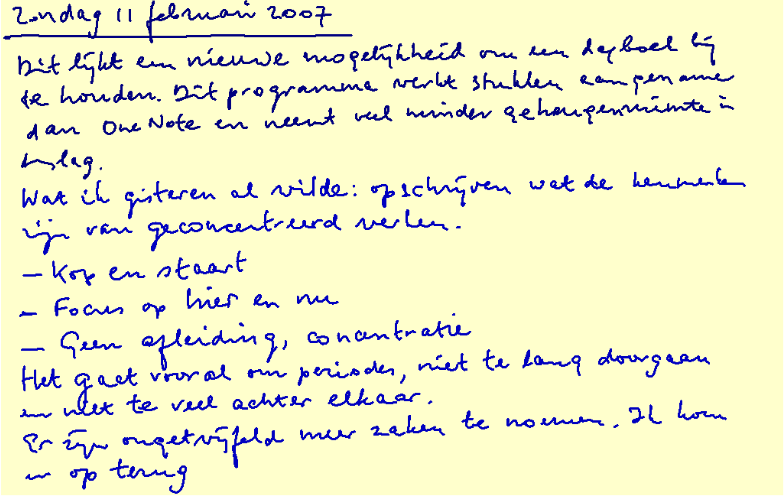 Zondag 11 februari 2007
Dit lijkt een nieuwe mogelijkheid om een dagboek bij
te houden. Dit programma werkt stukken aangenamer
dan OneNote en neemt veel minder geheugenruimte in
beslag.
Wat ik gisteren al wilde: opschrijven wat de kenmerken
zijn van geconcentreerd werken.
- Kop en staart
- Focus op hier en nu
- Geen afleiding, concentratie
Het gaat vooral om periodes, niet te lang doorgaan
en niet te veel achter elkaar.
Er zijn ongetwijfeld meer zaken te noemen. Ik kom
er op terug